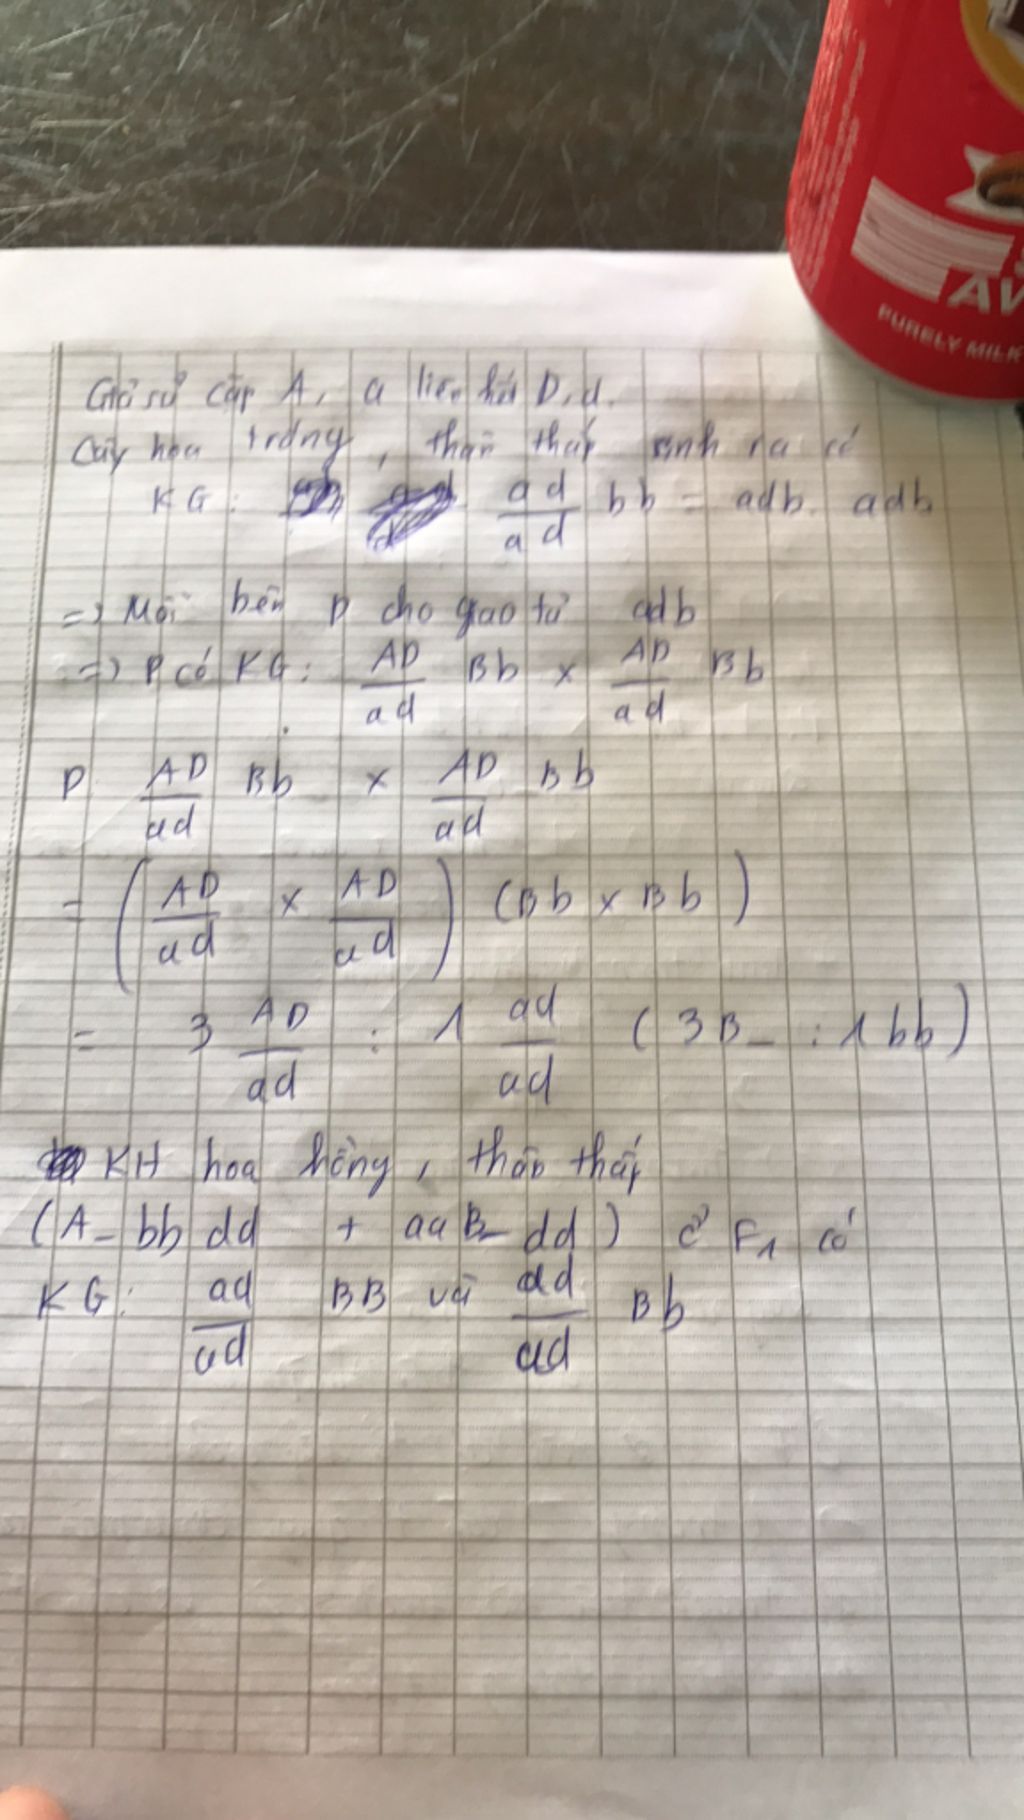 AW
PURELY MILK
Giả sử cặp A, a liên kết D, d.
Cây hoa trắng, thân thấp sinh ra có
KG: ad/ad bb = adb. adb
=> Mỗi bên P cho giao tử adb
=> P có KG: AD/ad Bb x AD/ad Bb
P AD/ad Bb x AD/ad Bb
= (AD/ad x AD/ad) (Bb x Bb)
= 3 AD/ad : 1 ad/ad (3B_ : 1bb)
KH hoa hồng, thân thấp
(A_ bb dd + aaB_ dd) ở F1 có
KG: ad/ad BB và ad/ad Bb